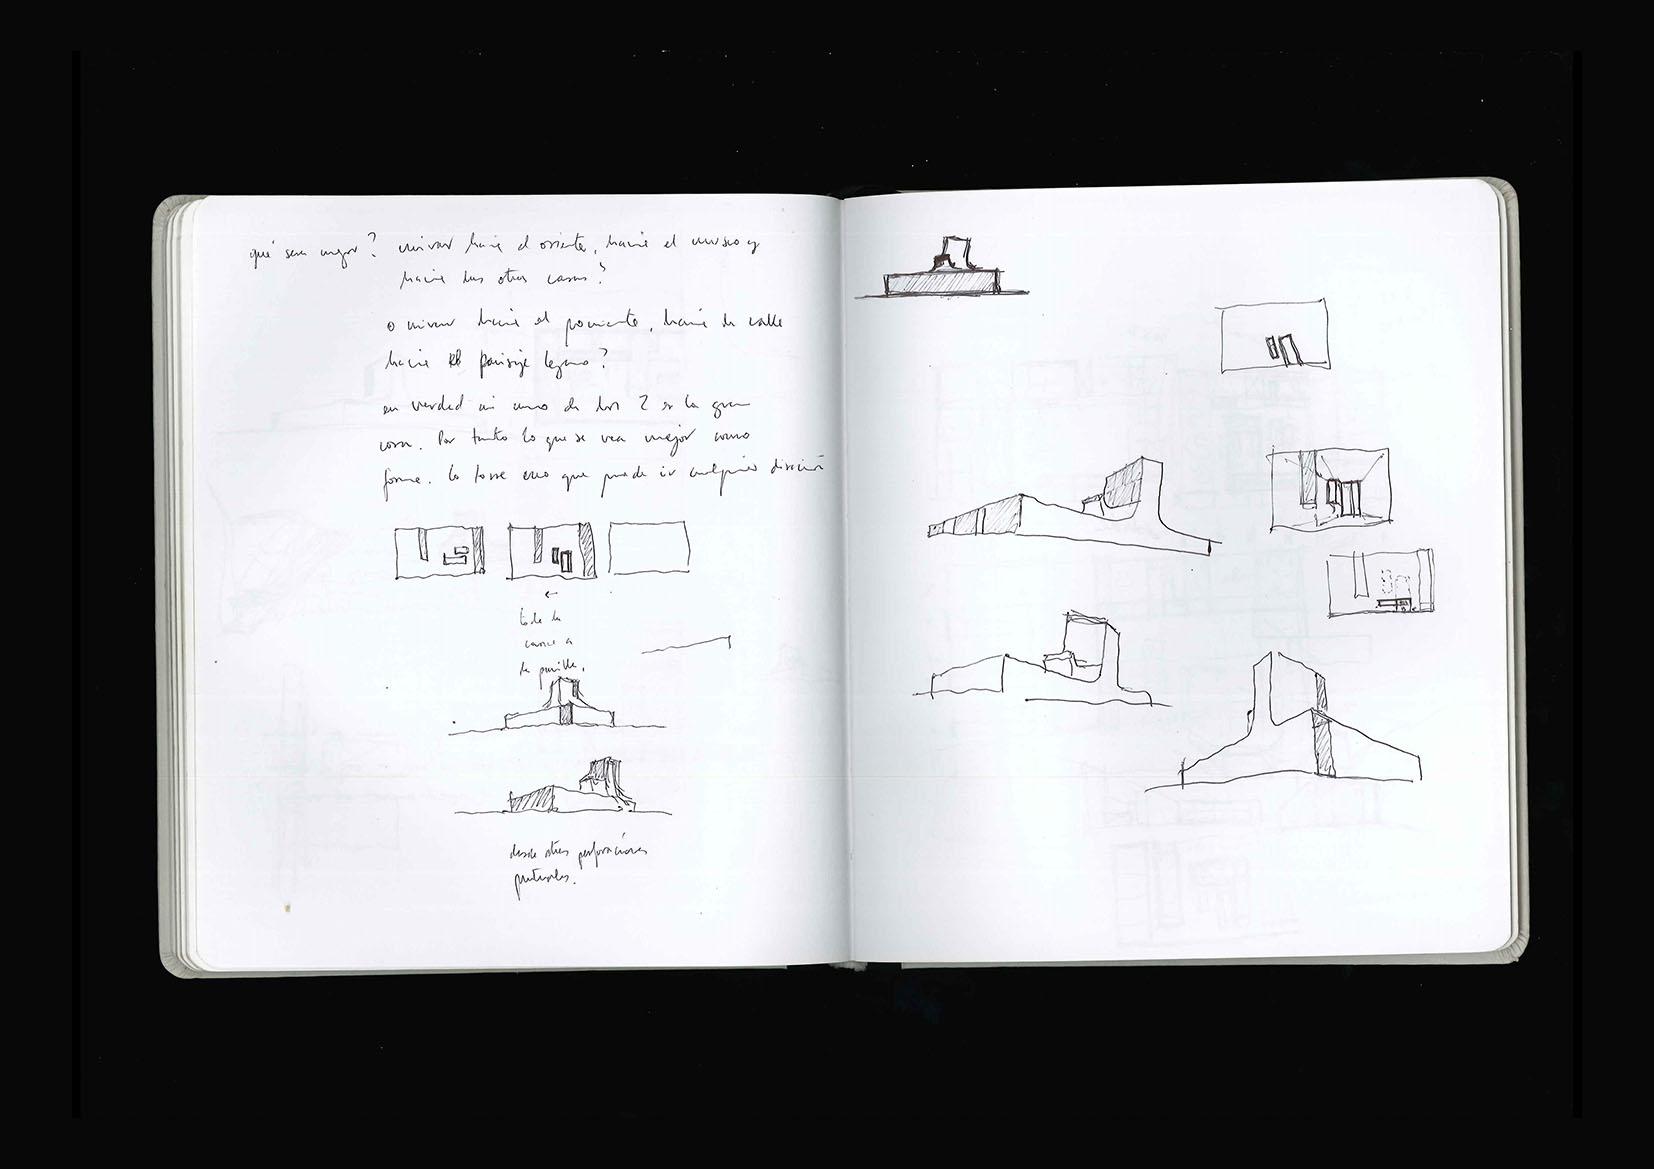 qué será mejor? mirar hacia el oriente, hacia el museo y
hacia las otras casas?
o mirar hacia el poniente, hacia la calle
hacia el paisaje lejano?
en verdad ni uno de los 2 es la gran
cosa. Por tanto lo que se vea mejor como
forma. la torre creo que puede ir cualquier dirección
←
toda la
carne a
la parrilla.
desde otras perforaciones